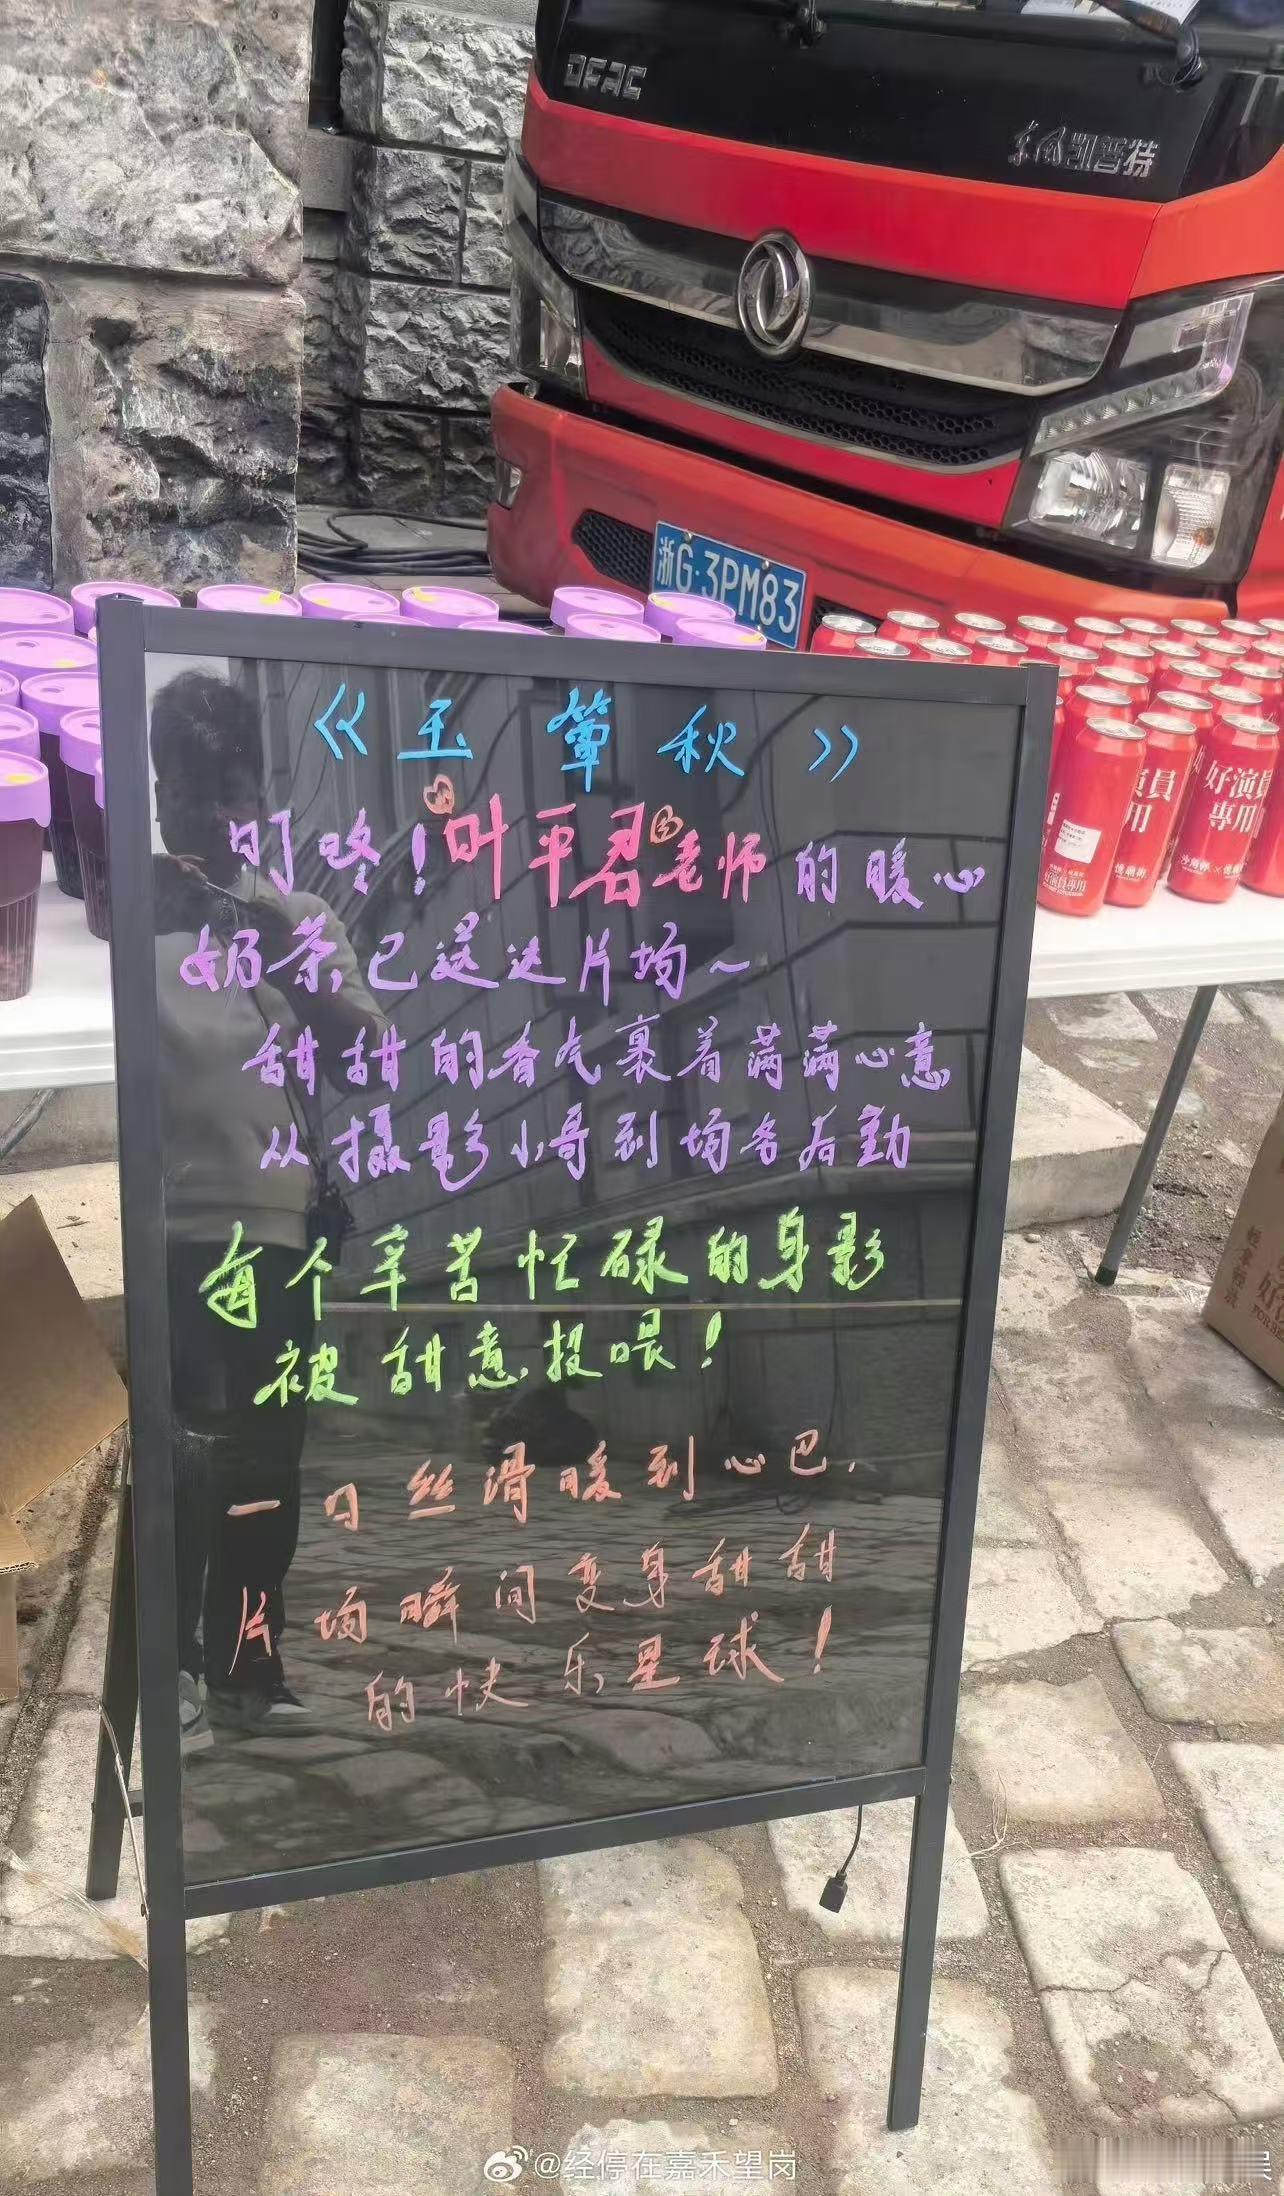 DFAC
东风凯普特
浙G·3PM83
《玉簟秋》
叮咚！叶平君老师的暖心
奶茶,已送达片场~
甜甜的香气裹着满满心意
从摄影小哥到场务后勤
每个辛苦忙碌的身影
被甜意投喂！
一口丝滑暖到心巴.
片场瞬间变身甜甜
的快乐星球！
好演員
專用
員
用
好演員專用
@经停在嘉禾望岗